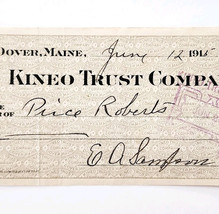 DOVER, MAINE, June 12 1915
KINEO TRUST COMPA
OF Price Roberts
E A Sampson